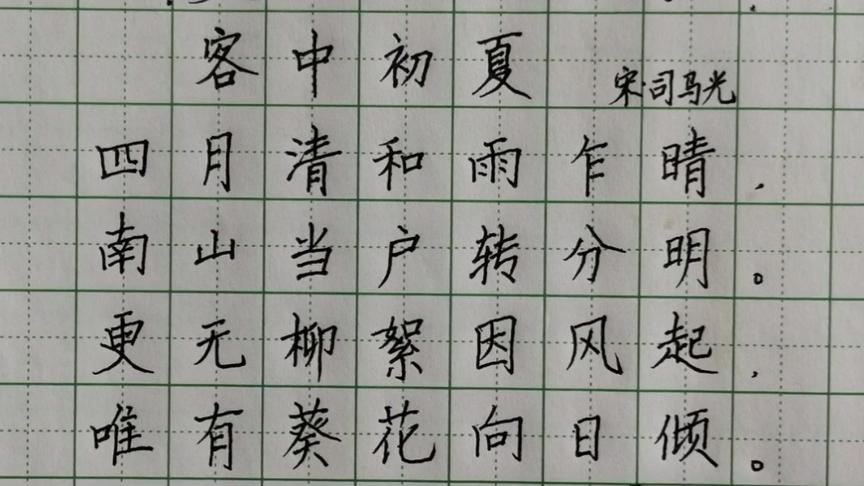 客中初夏 宋·司马光
四月清和雨乍晴，
南山当户转分明。
更无柳絮因风起，
唯有葵花向日倾。